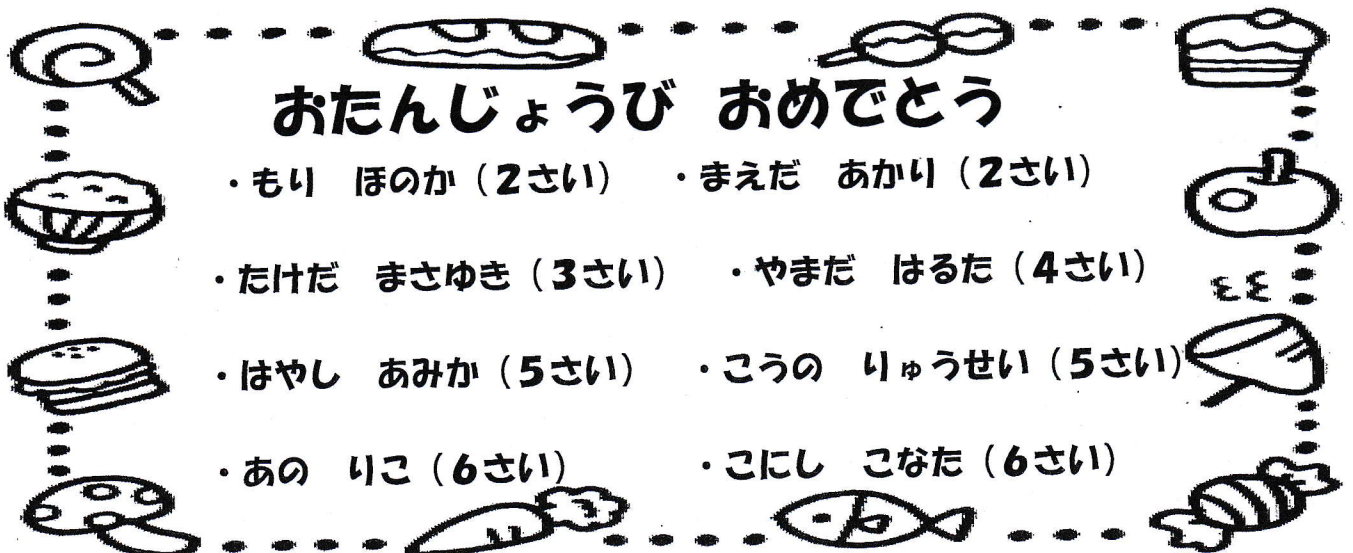 おたんじょうび おめでとう
・もり ほのか（2さい） ・まえだ あかり（2さい）
・たけだ まさゆき（3さい） ・やまだ はるた（4さい）
・はやし あみか（5さい） ・こうの りゅうせい（5さい）
・あの りこ（6さい） ・こにし こなた（6さい）